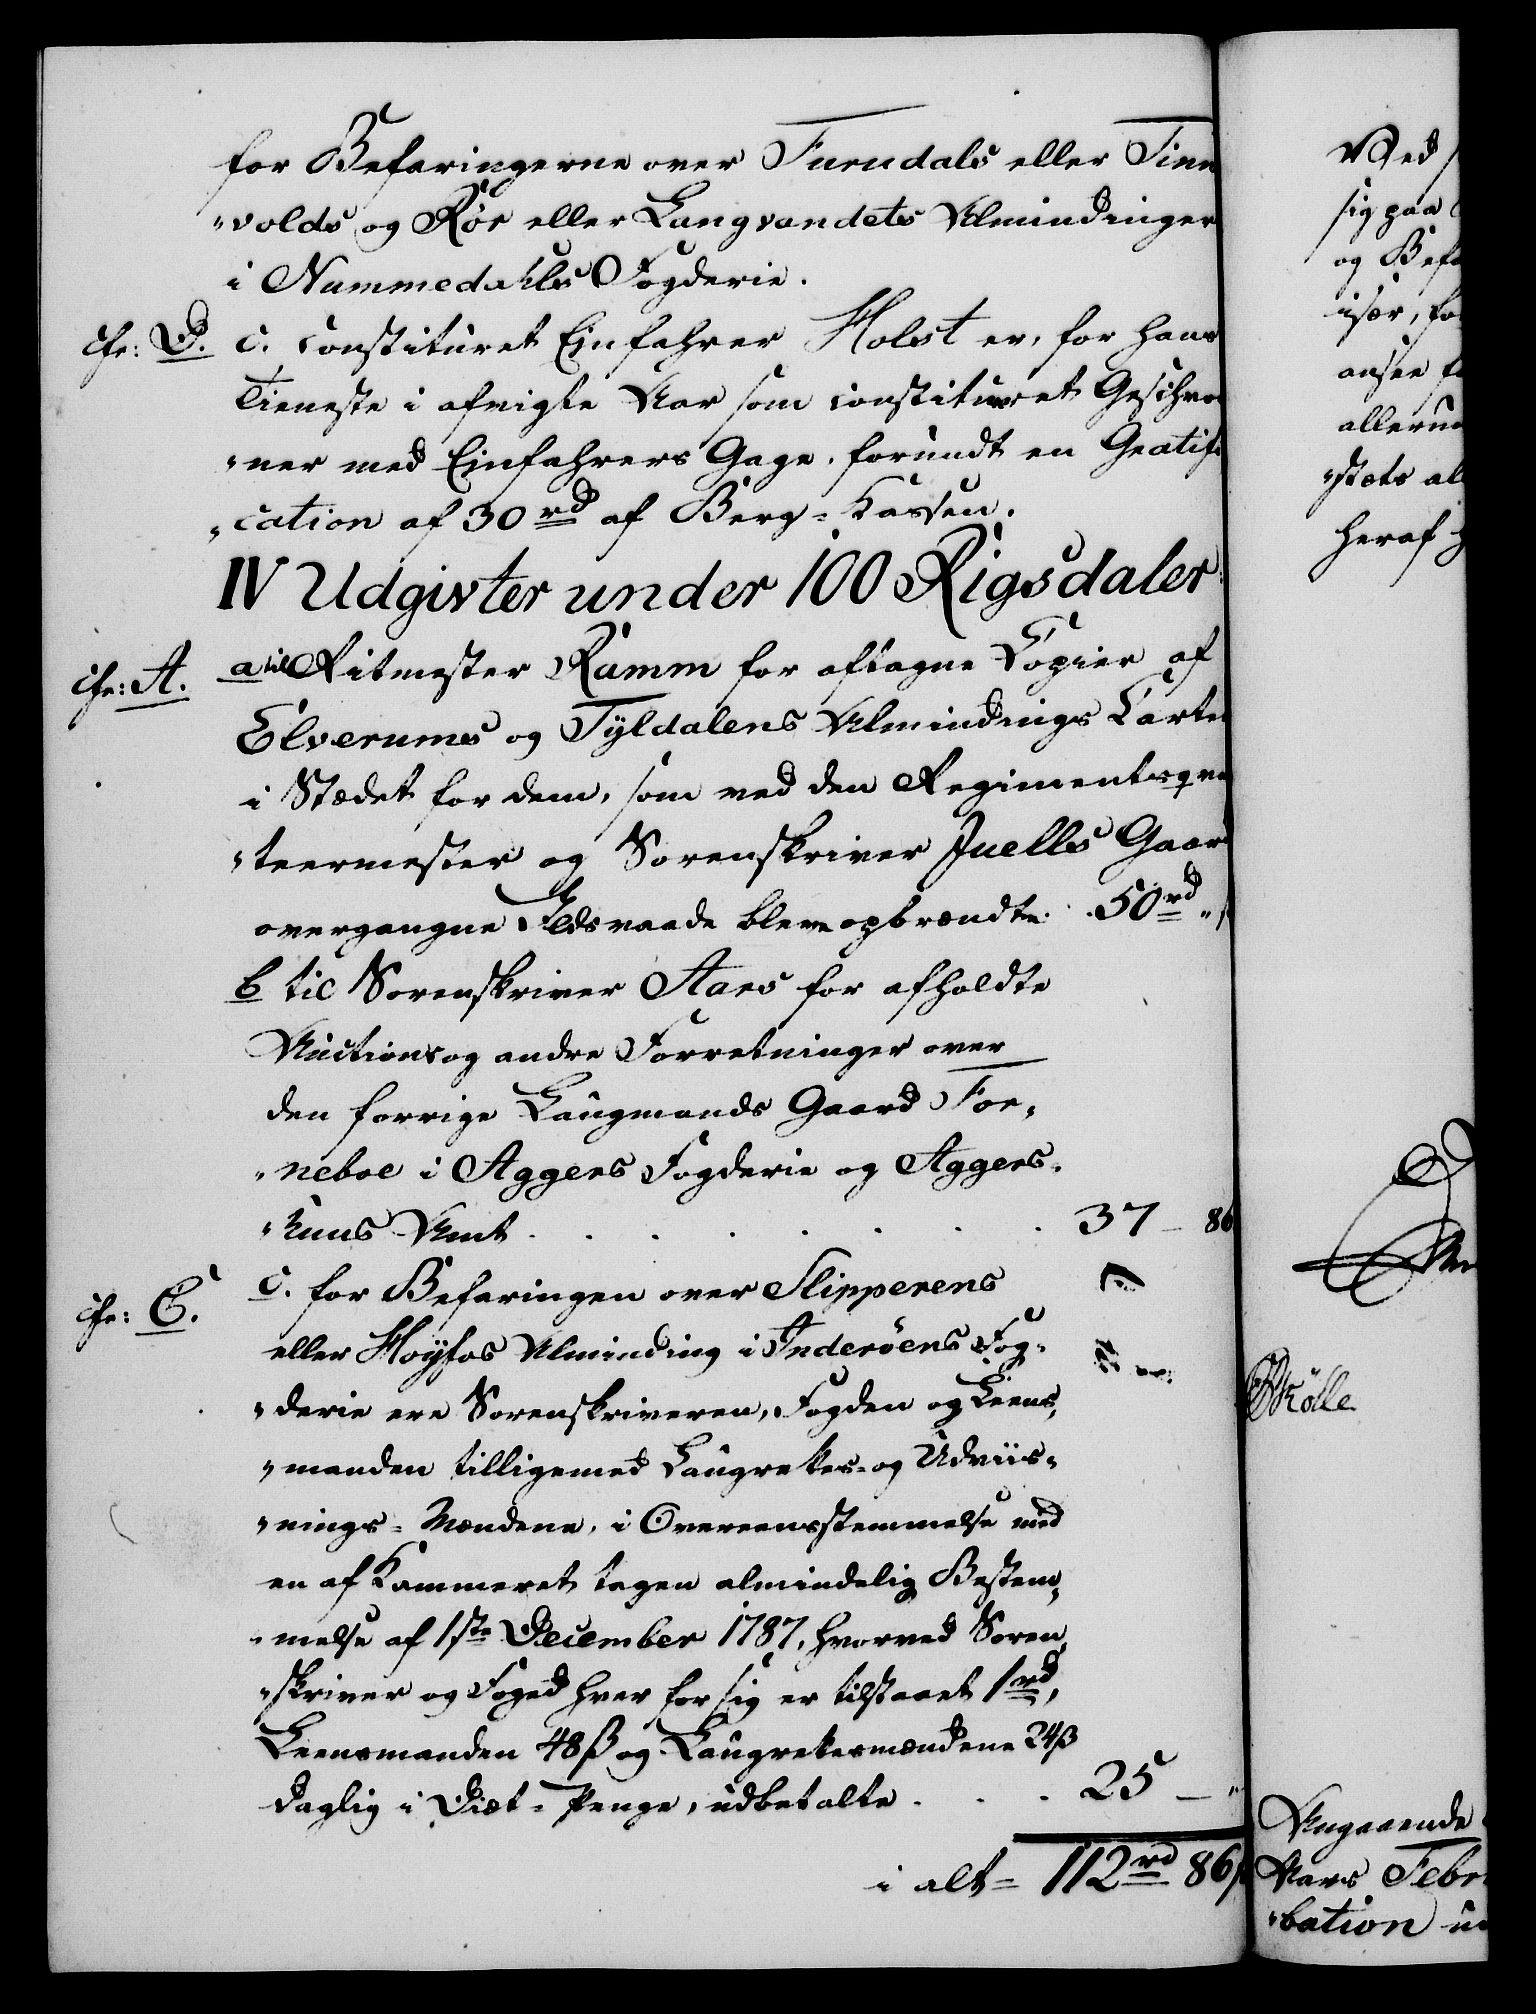 for Befaringerne over Furudals eller Finn
„volds og Rör eller Langvandets Almindinger
i Nummedahls Fogderie.
cfr: D. c. constitueret Einfahrer Holst er, for hans
Tieneste i afvigte Aar som constitueret Geschvo
„ner med Einfahrers Gage, forundt en Gratifi
„cation af 30 rd af Berg-Kassen.
IV Udgivter under 100 Rigsdaler:
cfr: A. a til Ritmester Ramm for aftagne Copier af
Elverums og Tyldalens Almindings Carter
i Stædet for dem, som ved den Regimentsqvar
„teermester og Sorenskriver Juells Gaard
overgangne Ildsvaade bleve opbrændte. . 50 rd „
b til Sorenskriver Aars for afholdte
Auctions og andre Forretninger over
den forrige Laugmands Gaard For„
„neboe i Aggers Fogderie og Aggers„
„huus Amt . . . . . . . . 37 – 86
cfr: C. c. for Befaringen over Slipperens
eller Høyfos Alminding i Inderöens Fog„
„derie ere Sorenskriveren, Fogden og Leens„
„manden tilligemed Laugrettes- og Udviis„
„nings-Mændene, i Overeensstemmelse med
en af Kammeret tagen almindelig Bestem„
„melse af 1ste December 1787, hvorved Soren„
„skriver og Foged hver for sig er tilstaaet 1 rd,
Leensmanden 48 ß og Laugrettesmændene 24 ß
daglig i Diæt-Penge, udbetalte . . . 25 – „
i alt = 112 rd 86 ß
Ved
sig paa
og Befa
især, fo
ansee fo
allerun
„stets al
heraf
Skölle
Angaaende
Aars Febr
„bation u